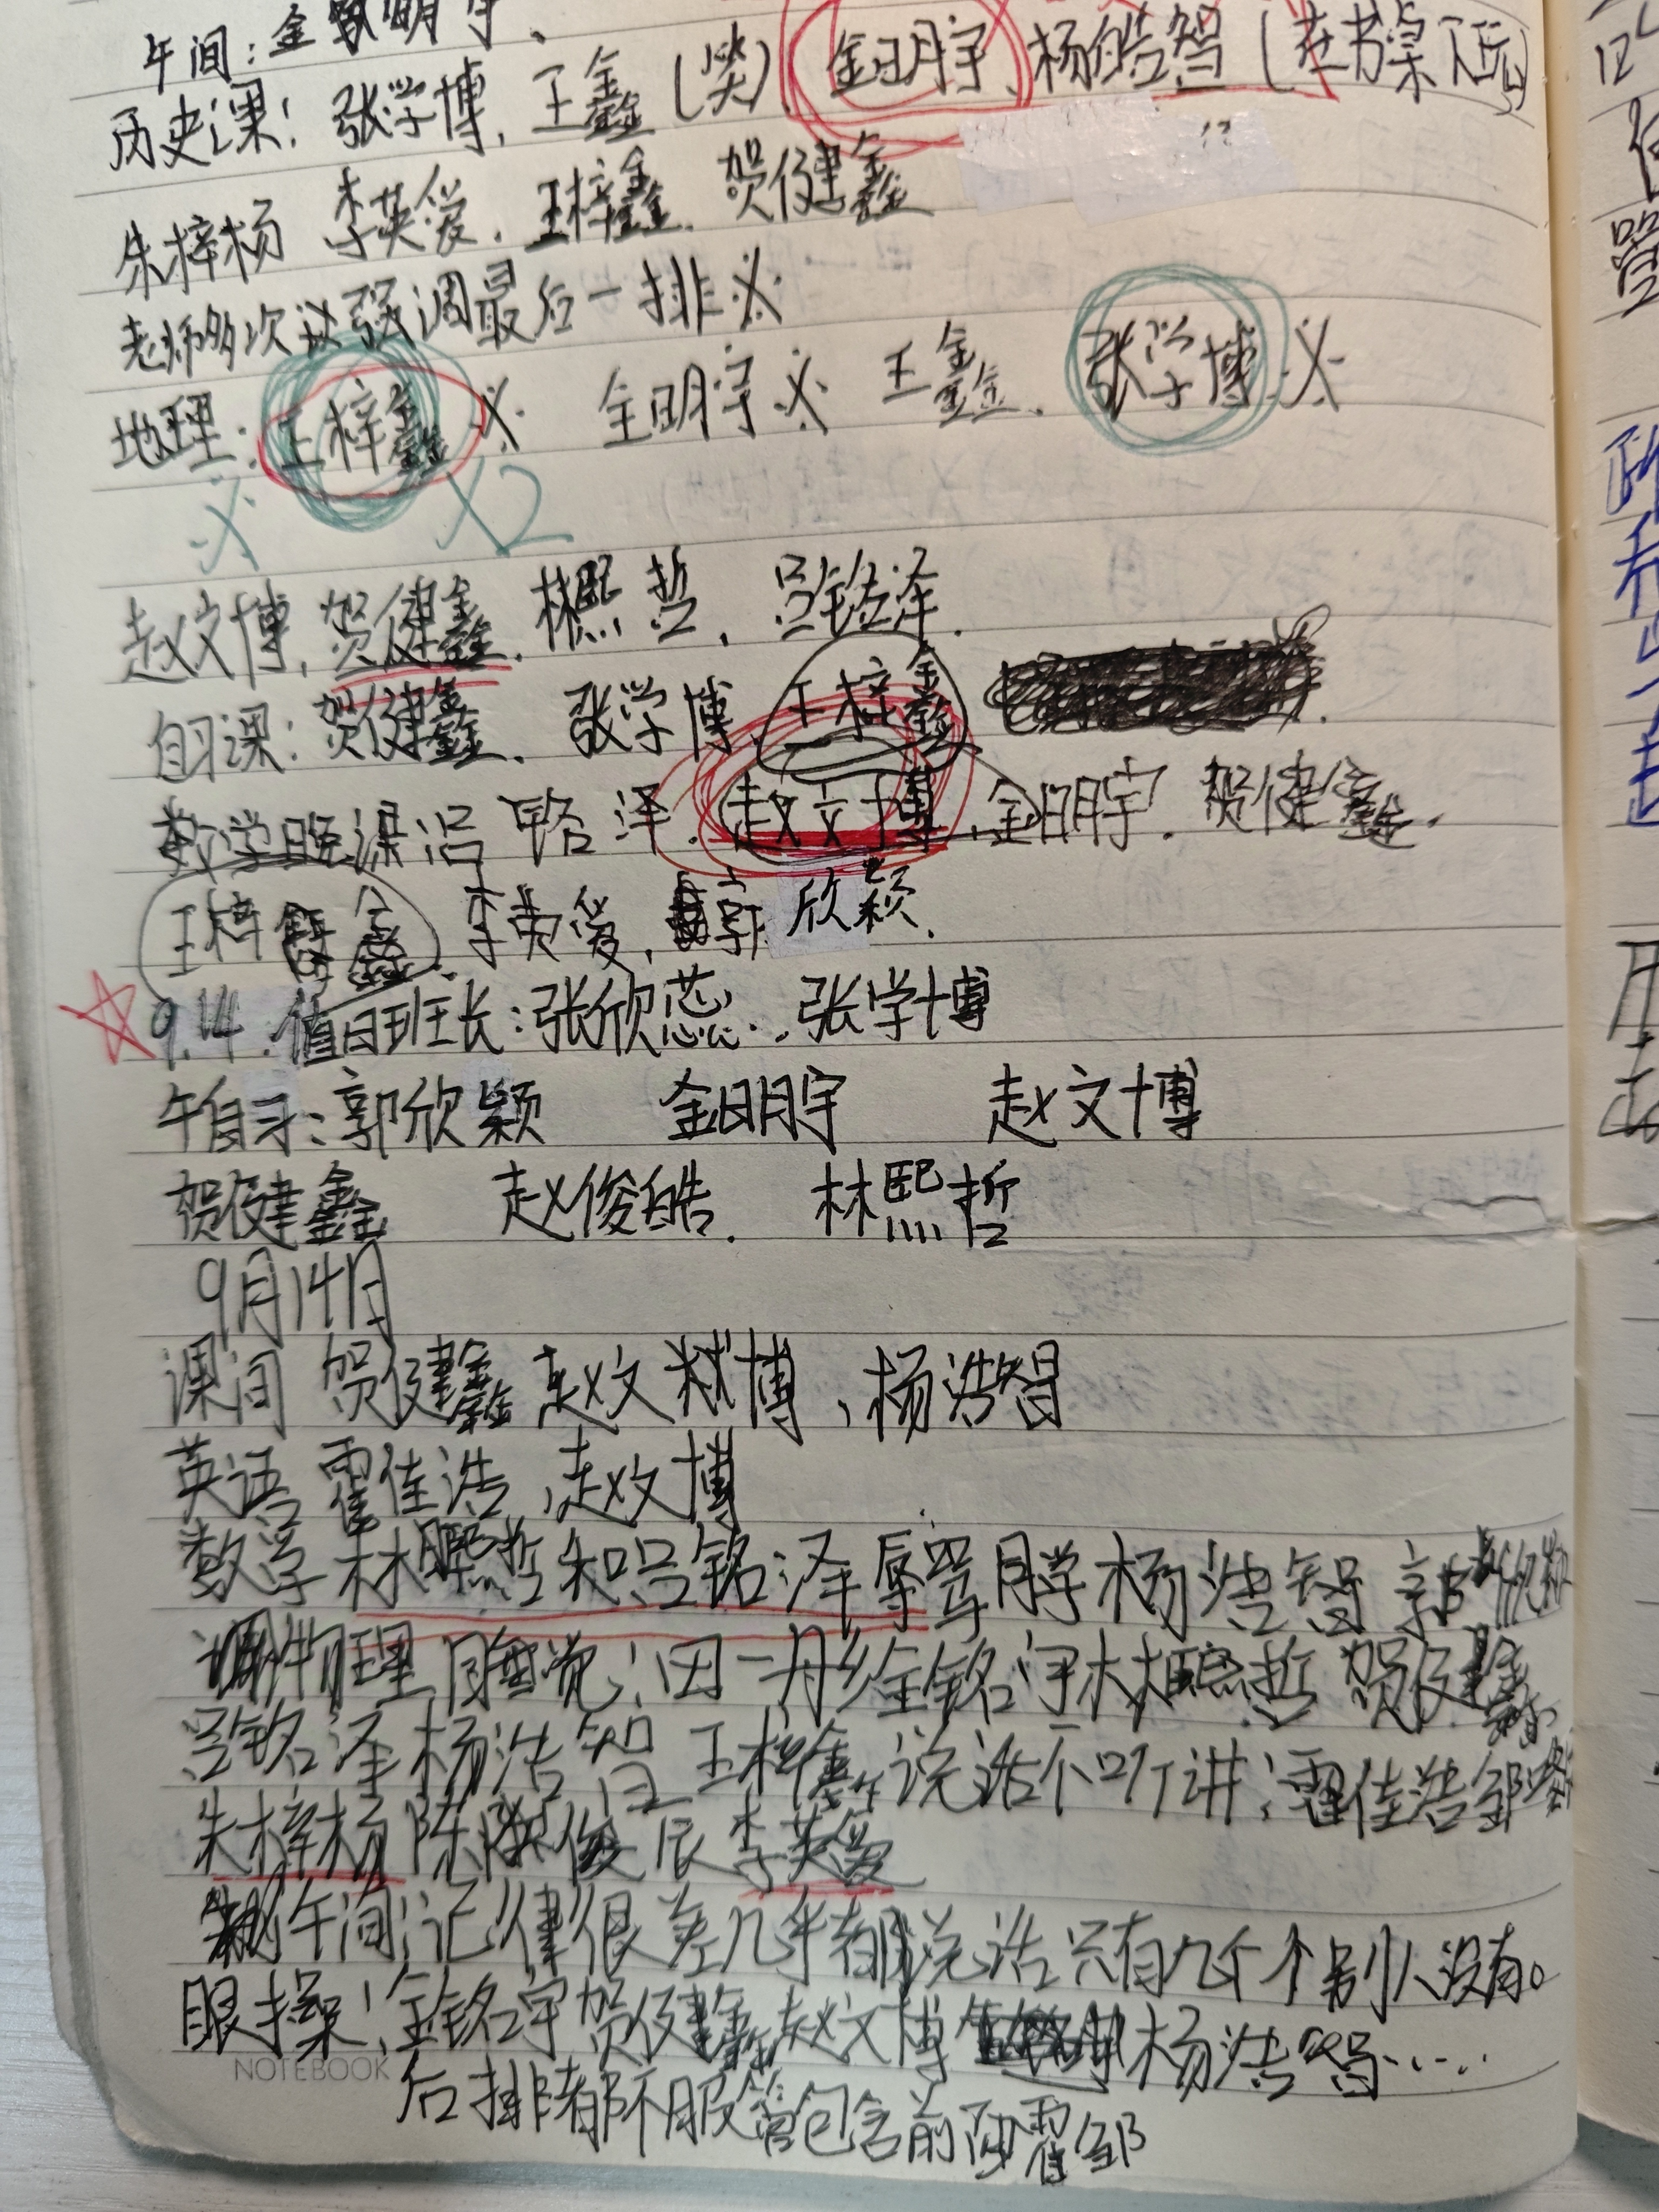 午间:金明宇、
历史课:张学博,王鑫(笑),金明宇,杨皓智(在书桌下玩)
朱梓杨 李英爱,王梓鑫,贺健鑫
老师多次强调最后一排※
地理:王梓鑫※ 金明宇※ 王鑫、张学博※
※ ×2
赵文博,贺健鑫,林熙哲,吕铭泽.
自习课:贺健鑫,张学博,王梓鑫
数学晚课 吕铭泽,赵文博,金明宇,贺健鑫.
王梓鑫,李英爱,郭欣颖.
☆9.14.值日班长:张欣蕊..张学博
午自习:郭欣颖 金明宇 赵文博
贺健鑫 赵俊皓. 林熙哲
9月14日
课间 贺健鑫 赵文博、杨浩智
英语 霍佳浩,赵文博
数学 林熙哲和吕铭泽辱骂同学 杨浩智 郭欣
物理 睡觉:田一丹 金铭宇 林熙哲 贺健鑫
吕铭泽 杨浩智 王梓鑫 说话不听讲:霍佳浩 邹
朱梓杨 陈俊辰 李英爱
午间:记律很差几乎都说话只有几个个别人没有。
眼操:金铭宇 贺健鑫 赵文博 杨浩智……
后排都不服管包含前两霍邹
NOTEBOOK